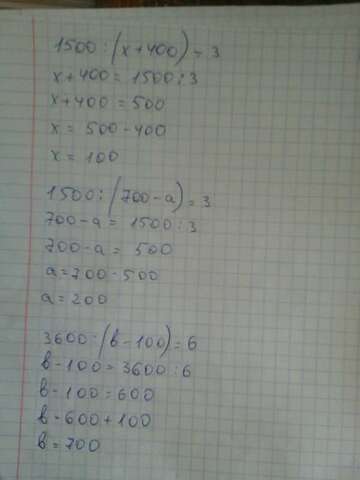 1500:(x+400)=3
x+400=1500:3
x+400=500
x=500-400
x=100
1500:(700-a)=3
700-a=1500:3
700-a=500
a=700-500
a=200
3600:(в-100)=6
в-100=3600:6
в-100=600
в=600+100
в=700